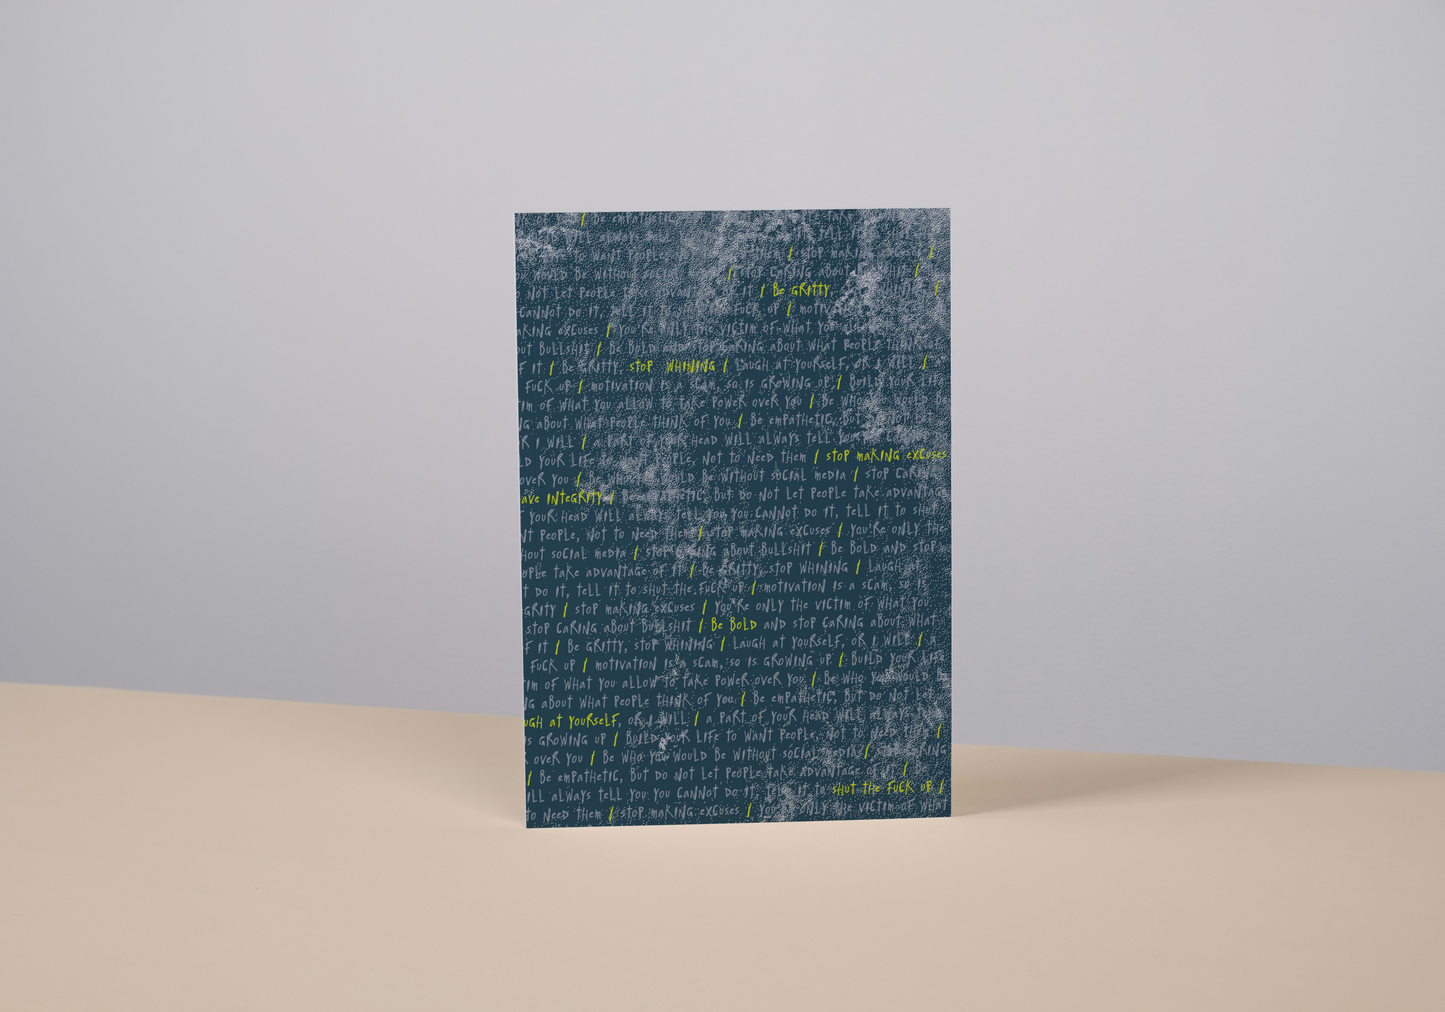 / Be empathetic
will always tell
to want people / stop making
would be without social / stop caring about /
not let people take advantage it / Be gritty, /
cannot do it, tell it to shut fuck up / motivation
aking excuses / you're only the victim of what you allow
out bullshit / Be bold and stop caring about what people think
f it / Be gritty, stop whining / Laugh at yourself, or I will /
fuck up / motivation is a scam, so is growing up / Build your life
tim of what you allow to take power over you / Be who would be
ng about what people think of you / Be empathetic, but do
or I will / a part of your head will always tell you
ld your life people, not to need them / stop making excuses
over you / Be who would be without social media / stop caring
ave integrity / Be empathetic, but do not let people take advantage
f your head will always tell you you cannot do it, tell it to shut
nt people, not to need them / stop making excuses / you're only the
hout social media / stop caring about bullshit / Be bold and stop
ople take advantage of it / Be gritty, stop whining / Laugh at
t do it, tell it to shut the fuck up / motivation is a scam, so is
grity / stop making excuses / you're only the victim of what you
stop caring about bullshit / Be bold and stop caring about what
f it / Be gritty, stop whining / Laugh at yourself, or I will / a
fuck up / motivation is a scam, so is growing up / Build your life
tim of what you allow to take power over you / Be who you would be
ng about what people think of you / Be empathetic, but do not let
ugh at yourself, or I will / a part of your head will always tell
is growing up / Build your life to want people, not to need them /
r over you / Be who you would be without social media / caring
/ Be empathetic, but do not let people take advantage of it / Be
ill always tell you you cannot do it, tell it to shut the fuck up /
to need them / stop making excuses / you're only the victim of what